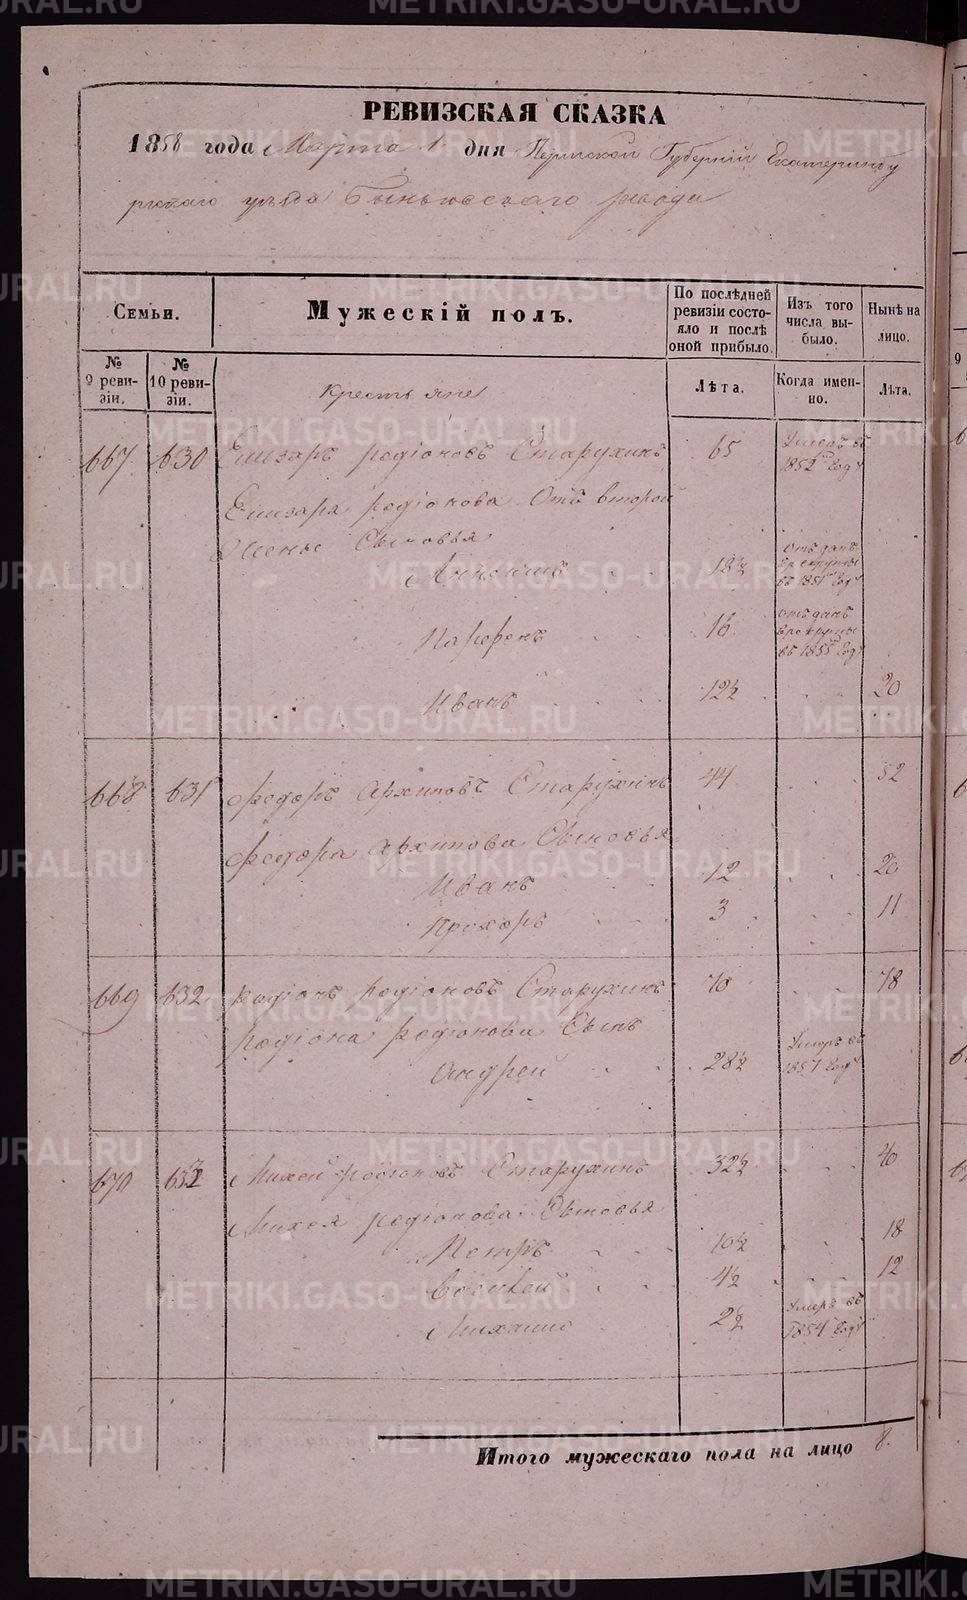 РЕВИЗСКАЯ СКАЗКА
1858 года Марта 1 дня Пермской Губерніи Екатеринбу
ргскаго уезда Быньговскаго
Семьи.
Мужескій полъ.
По послѣдней ревизіи состояло и послѣ оной прибыло.
Изъ того числа выбыло.
Нынѣ на лицо.
№ 9 ревизіи.
№ 10 ревизіи.
Крестьяне
Лѣта.
Когда именно.
Лѣта.
667 630 Елизаръ родіоновъ Старухинъ 65 Умеръ въ 1852 году
Елизара родіонова Отъ второй
Жены Сыновья
18½ отданъ в рекруты въ 1851 году
Парфенъ 16 отданъ в рекруты въ 1855 году
Иванъ 12½ 20
668 631 Федоръ Архиповъ Старухинъ 44 52
Федора Архипова Сыновья
Иванъ 12 20
Прохоръ 3 11
669 632 Родіонъ родіоновъ Старухинъ 70 78
Родіона родіонова Сынъ
Андрей 28½ Умеръ въ 1857 году
670 633 Михей родіоновъ Старухинъ 32½ 40
Михея родіонова Сыновья
Петръ 10½ 18
Евсевей 4½ 12
Михаило 2½ Умеръ въ 1854 году
Итого мужескаго пола на лицо 8.
METRIKI.GASO-URAL.RU